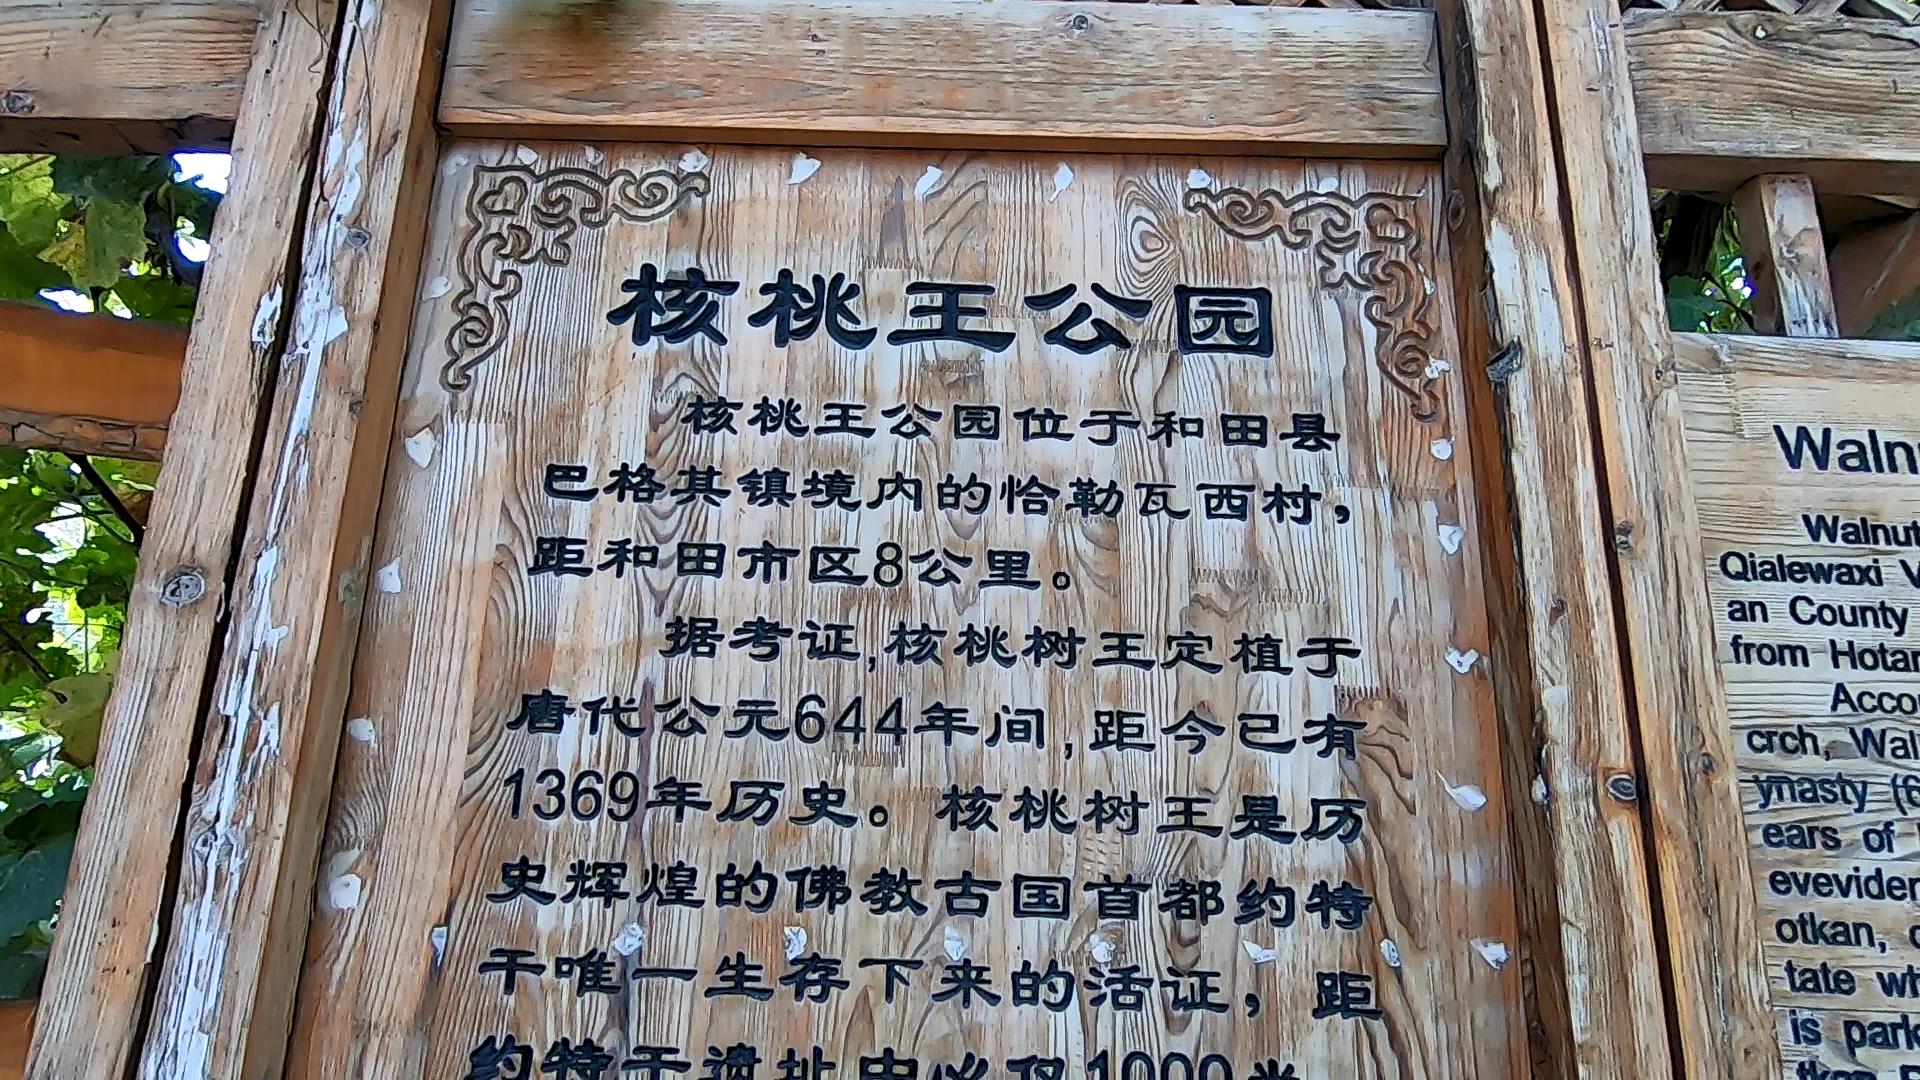 核桃王公园
核桃王公园位于和田县
巴格其镇境内的恰勒瓦西村，
距和田市区8公里。
据考证,核桃树王定植于
唐代公元644年间,距今已有
1369年历史。核桃树王是历
史辉煌的佛教古国首都约特
干唯一生存下来的活证，距
约特干遗址中心仅1000米
Waln
Walnut
Qialewaxi V
an County
from Hotan
Accor
crch, Wal
ynasty (6
ears of
eveviden
otkan, c
tate wh
is park
tkan